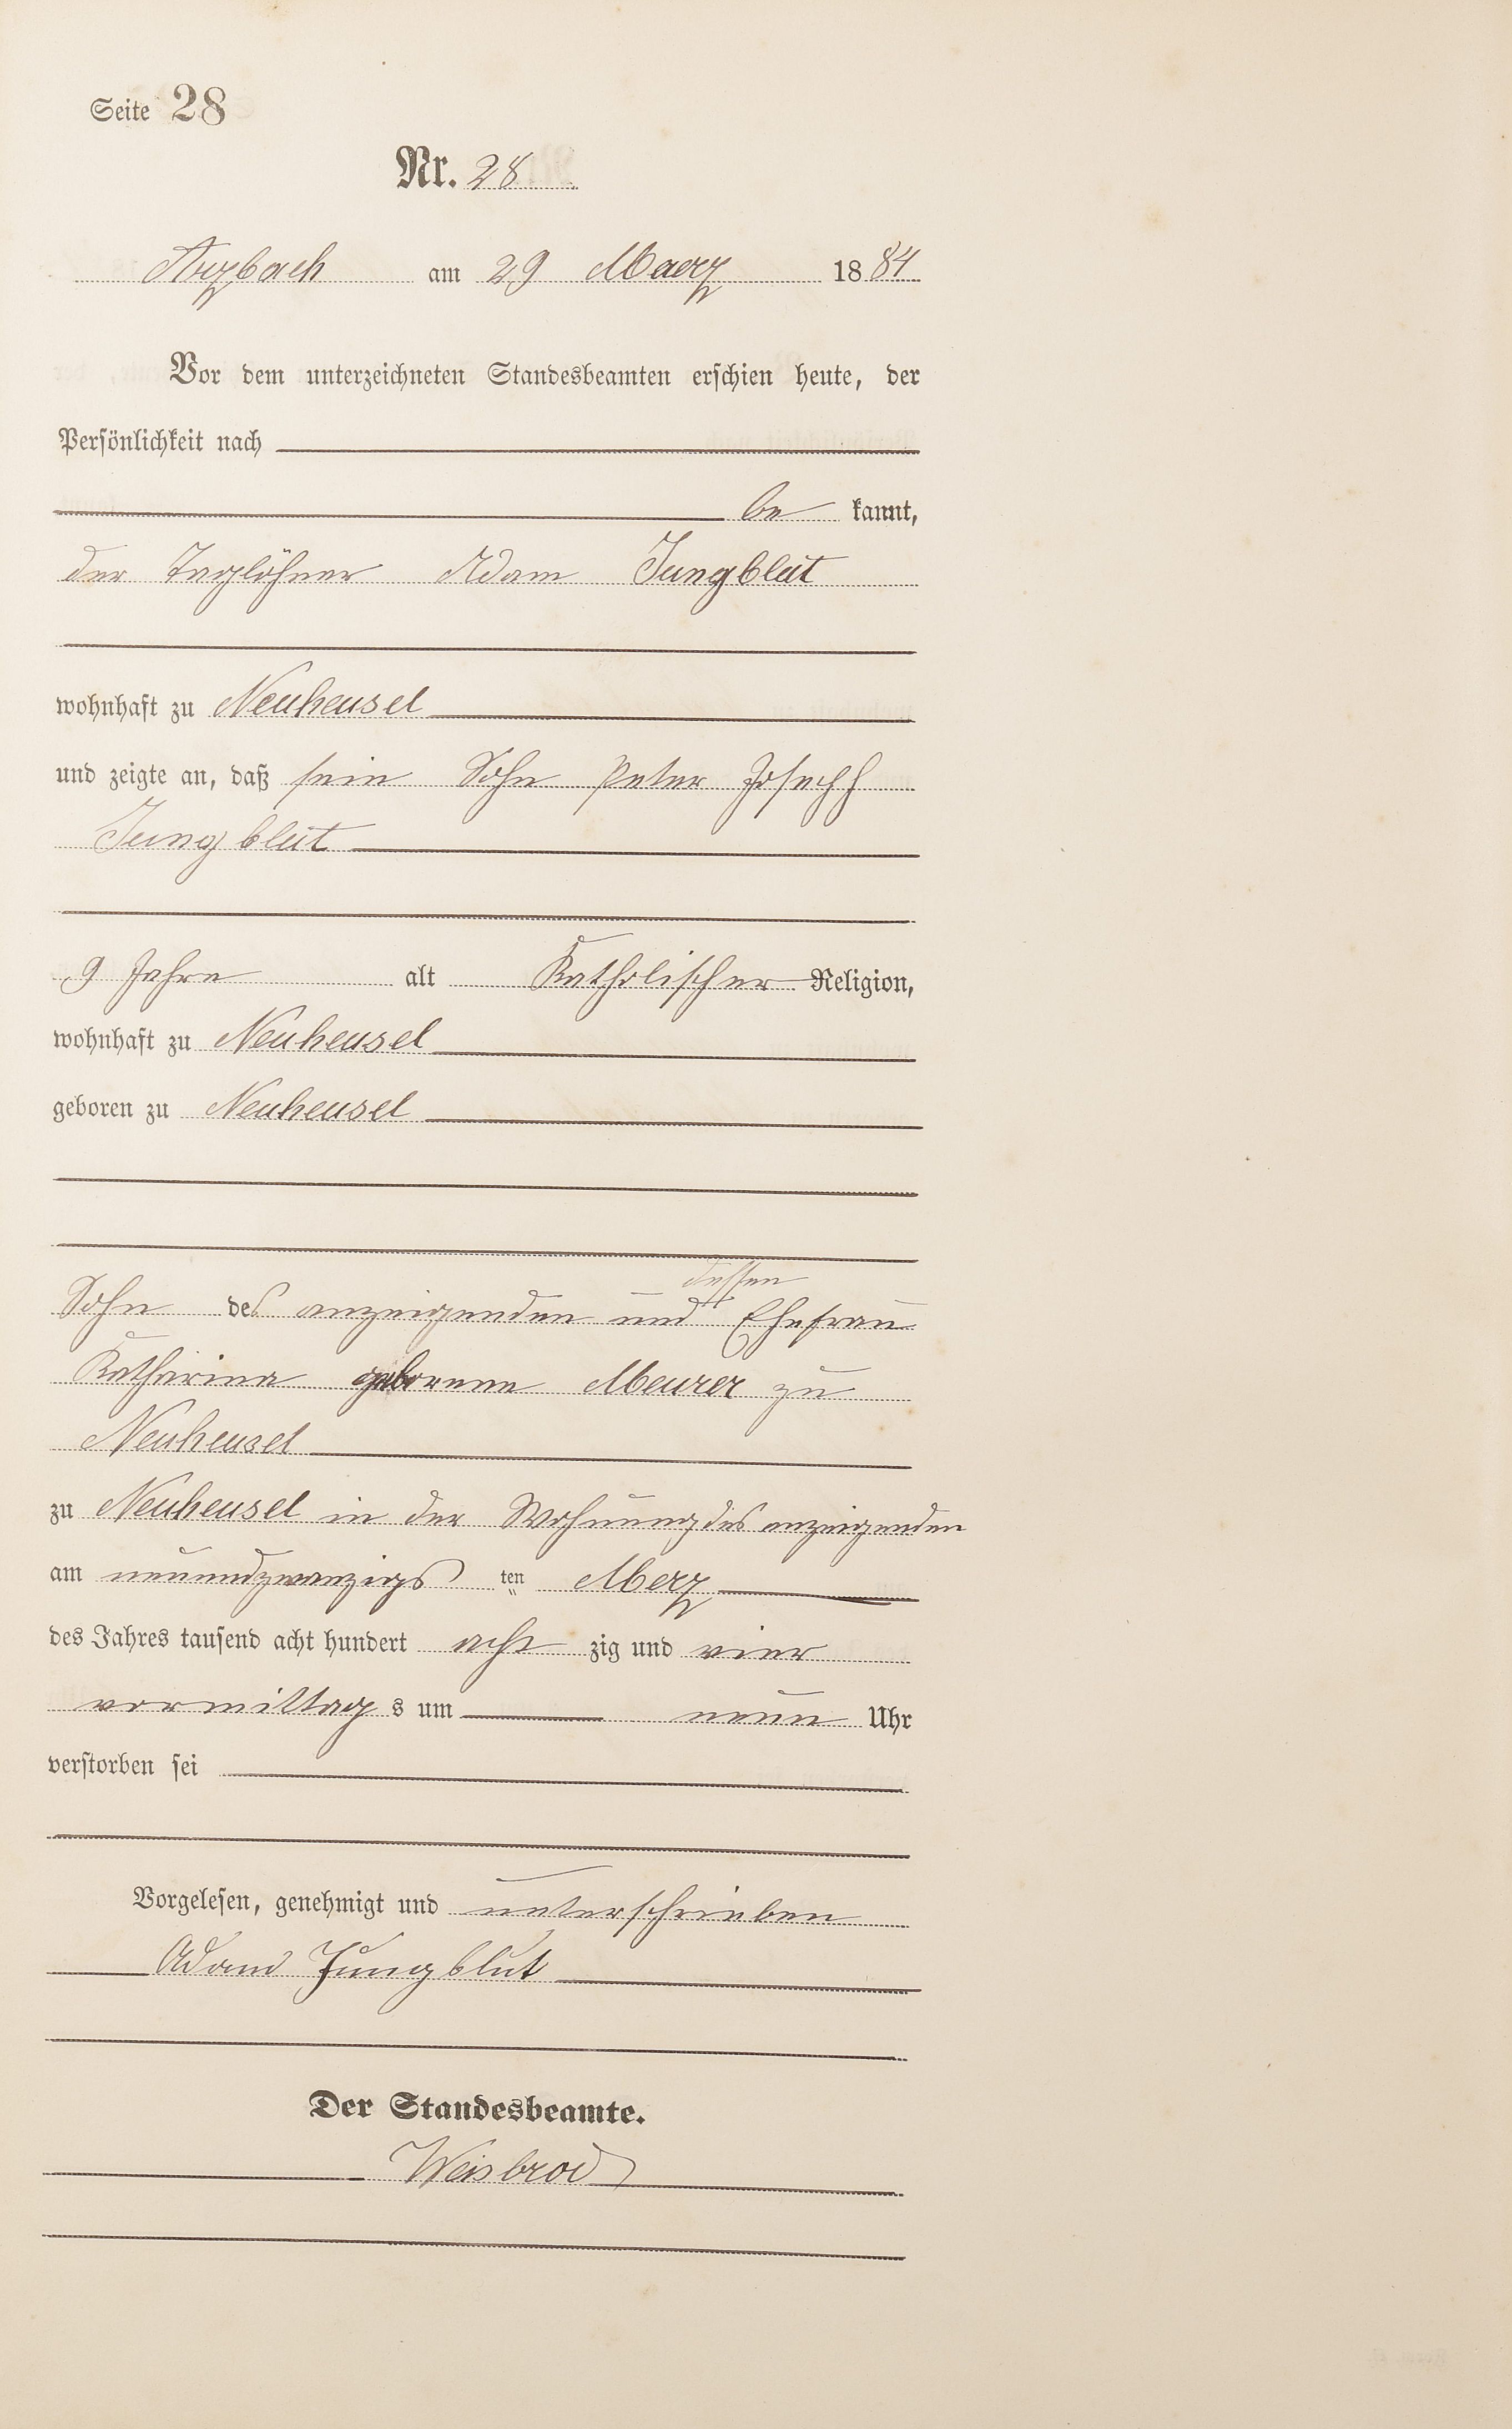 Seite 28
Nr. 28
Arzbach am 29 Maerz 1884
Vor dem unterzeichneten Standesbeamten erschien heute, der
Persönlichkeit nach
be kannt,
der Taglöhner Adam Jungblut
wohnhaft zu Neuheusel
und zeigte an, daß sein Sohn Peter Joseph
Jungblut
9 Jahre alt Katholischer Religion,
wohnhaft zu Neuheusel
geboren zu Neuheusel
dessen
Sohn des anzeigenden und Ehefrau
Katharina geborene Meurer zu
Neuheusel
zu Neuheusel in der Wohnung des anzeigenden
am neunundzwanzigs ten Merz
des Jahres tausend acht hundert acht zig und vier
vormittag s um neun Uhr
verstorben sei
Vorgelesen, genehmigt und unterschrieben
Adam Jungblut
Der Standesbeamte.
Weisbrod